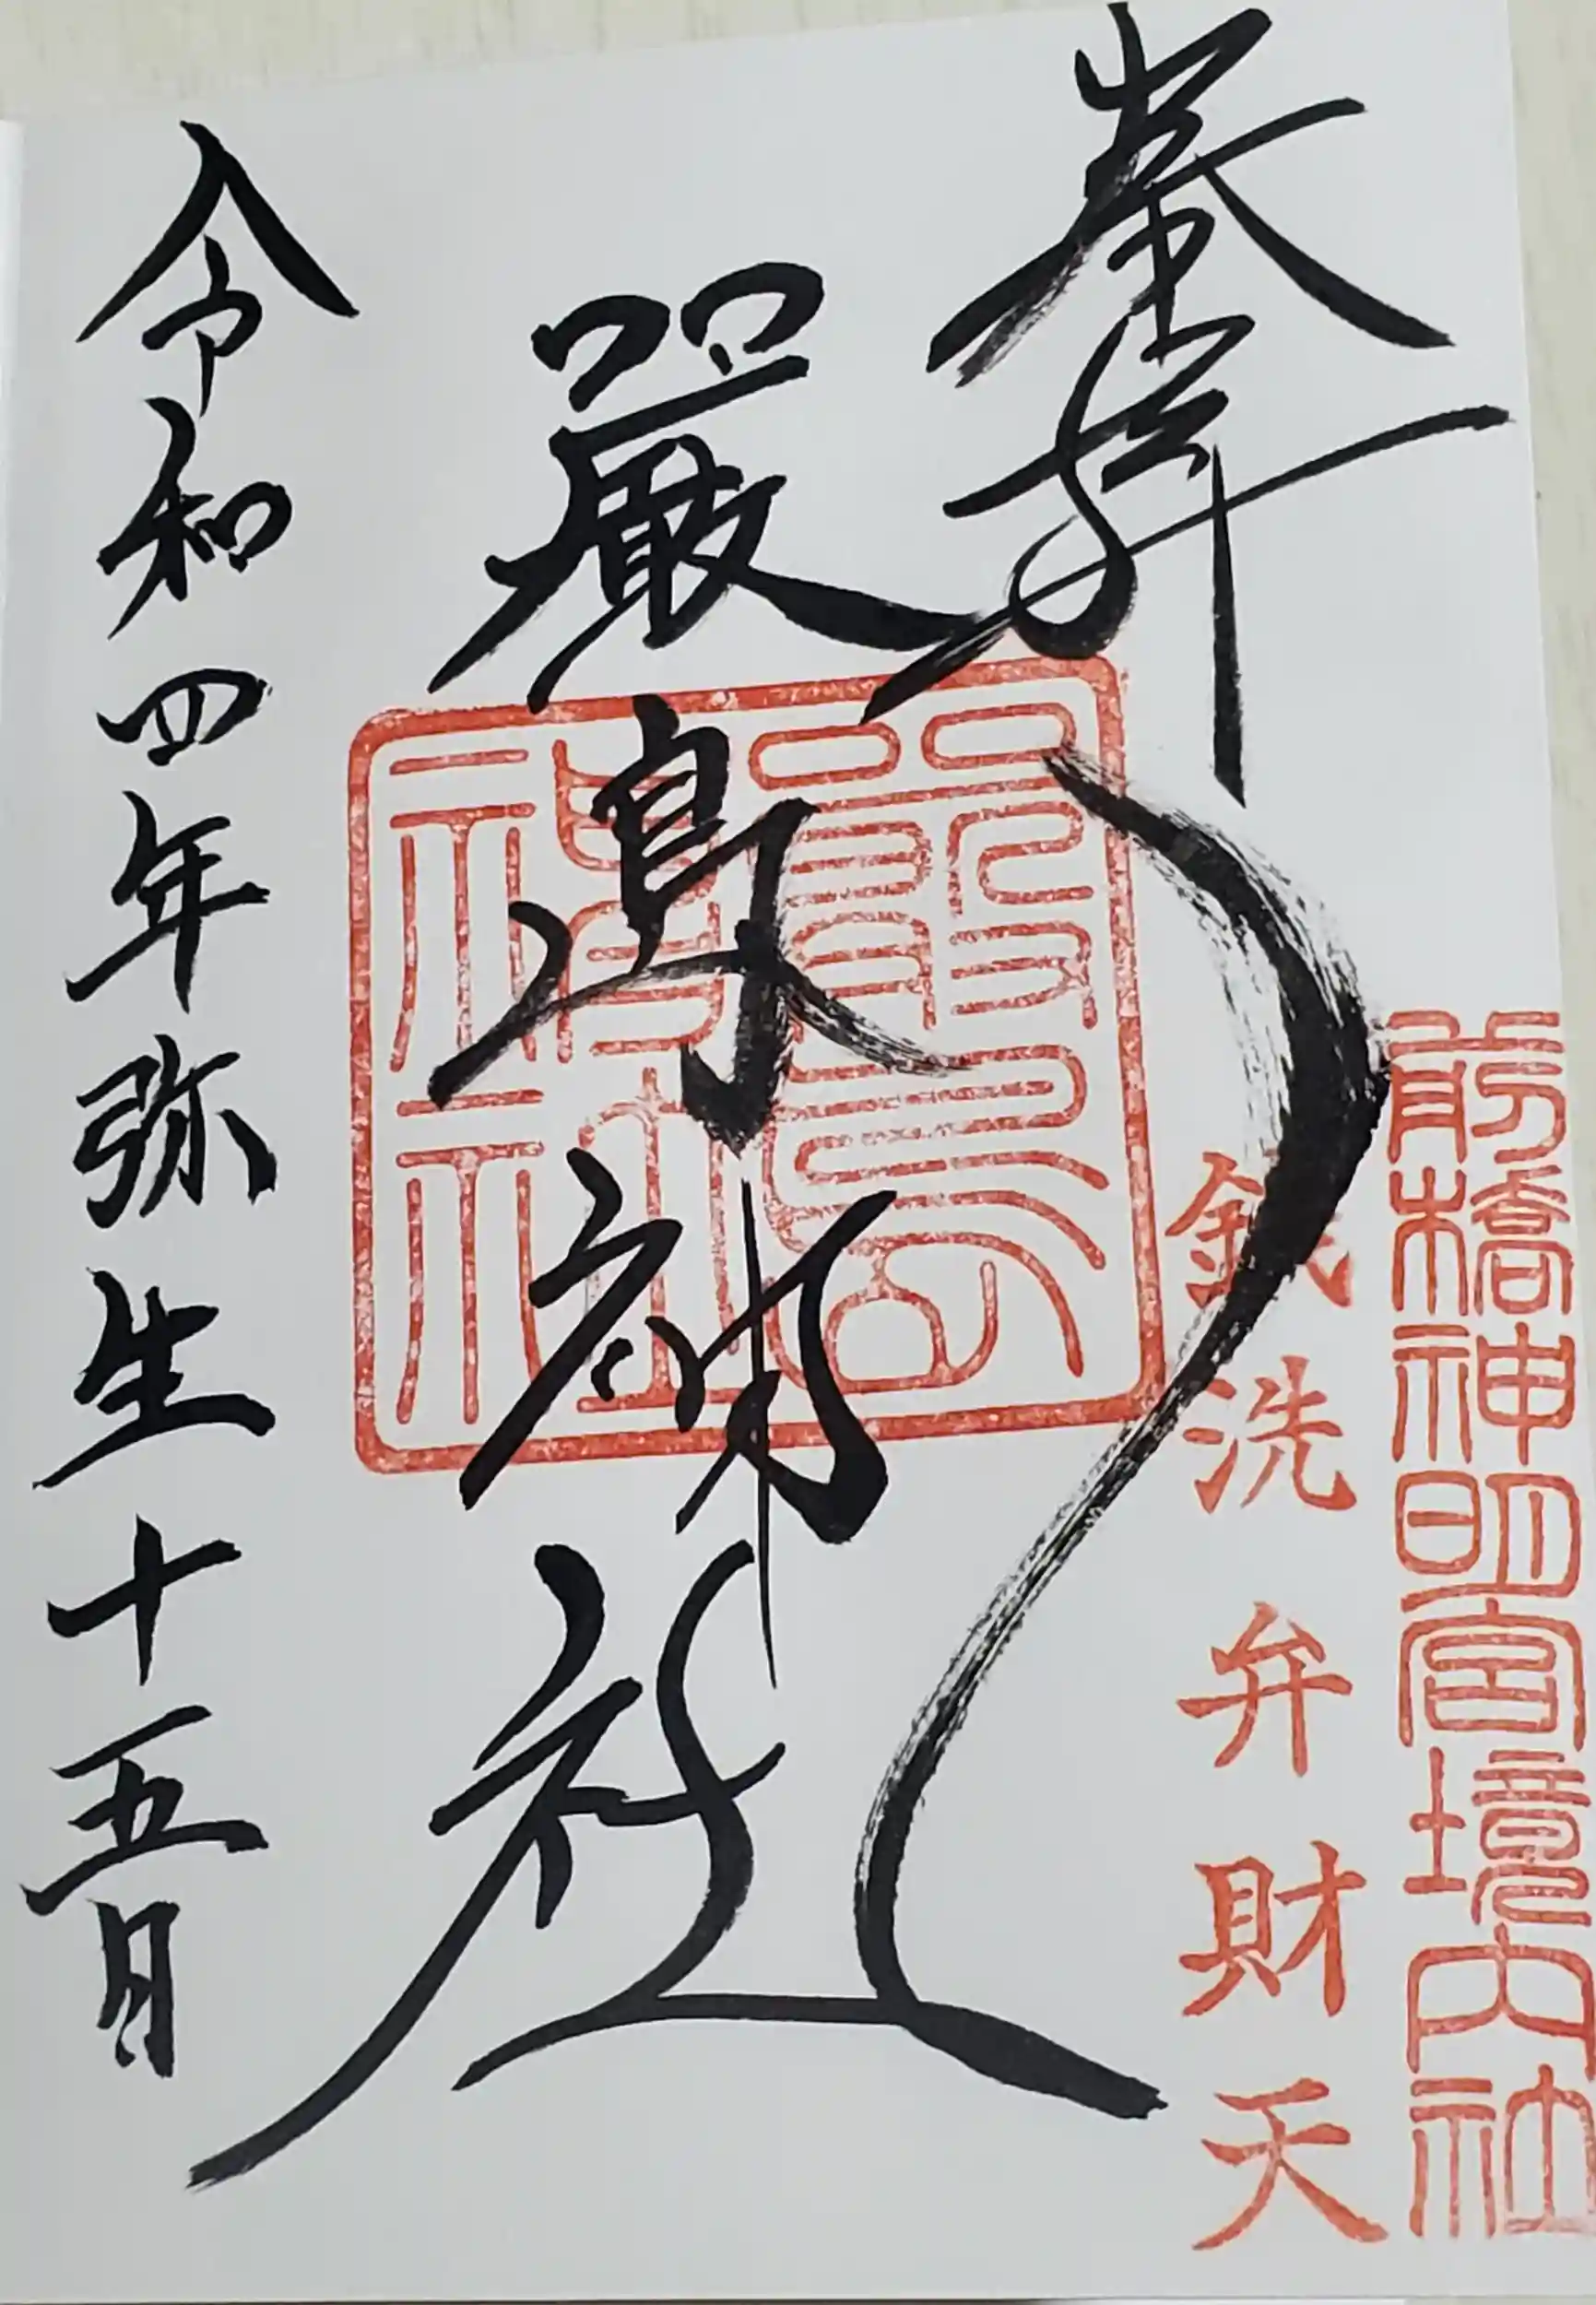 前橋神明宮境内社
銭洗弁財天
奉拝
嚴島神社
嚴島神社
令和四年弥生十五日